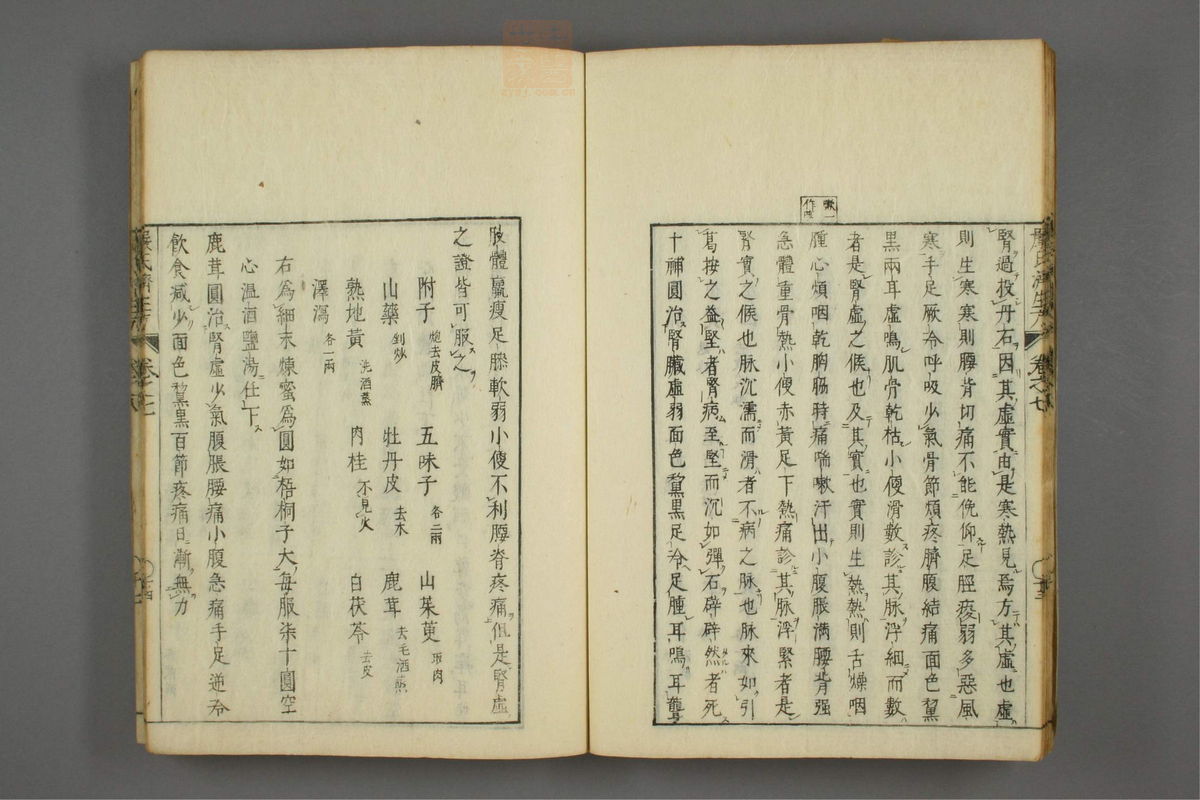 嗽一
作咳
腎過投丹石因其虛實由是寒熱見焉方其虛也虛
則生寒寒則腰背切痛不能俛仰足脛痠弱多惡風
寒手足厥冷呼吸少氣骨節煩疼臍腹結痛面色黧
黑兩耳虛鳴肌骨乾枯小便滑數診其脉浮細而數
者是腎虛之候也及其實也實則生熱熱則舌燥咽
腫心煩咽乾胸腸時痛喘嗽汗出小腹脹滿腰背强
急體重骨熱小便赤黃足下熱痛診其脉浮緊者是
腎實之候也脉沉濡而滑者不病之脉也脉來如引
葛按之益堅者腎病至堅而沉如彈石辟辟然者死
十補圓治腎臟虛弱面色黧黑足冷足腫耳鳴耳聾
嚴氏濟生方 卷之七
肢體羸瘦足膝軟弱小便不利腰脊疼痛但是腎虛
之證皆可服之
附子 炮去皮臍 五味子 各二兩 山茱萸 取肉
山藥 剉炒 牡丹皮 去木 鹿茸 去毛酒蒸
熟地黃 洗酒蒸 肉桂 不見火 白茯苓 去皮
澤瀉 各一兩
右為細末煉蜜為圓如梧桐子大每服柒十圓空
心溫酒鹽湯任下
鹿茸圓治腎虛少氣腹脹腰痛小腹急痛手足逆冷
飲食减少面色黧黑百節疼痛日漸無力
嚴氏濟生方 卷之七